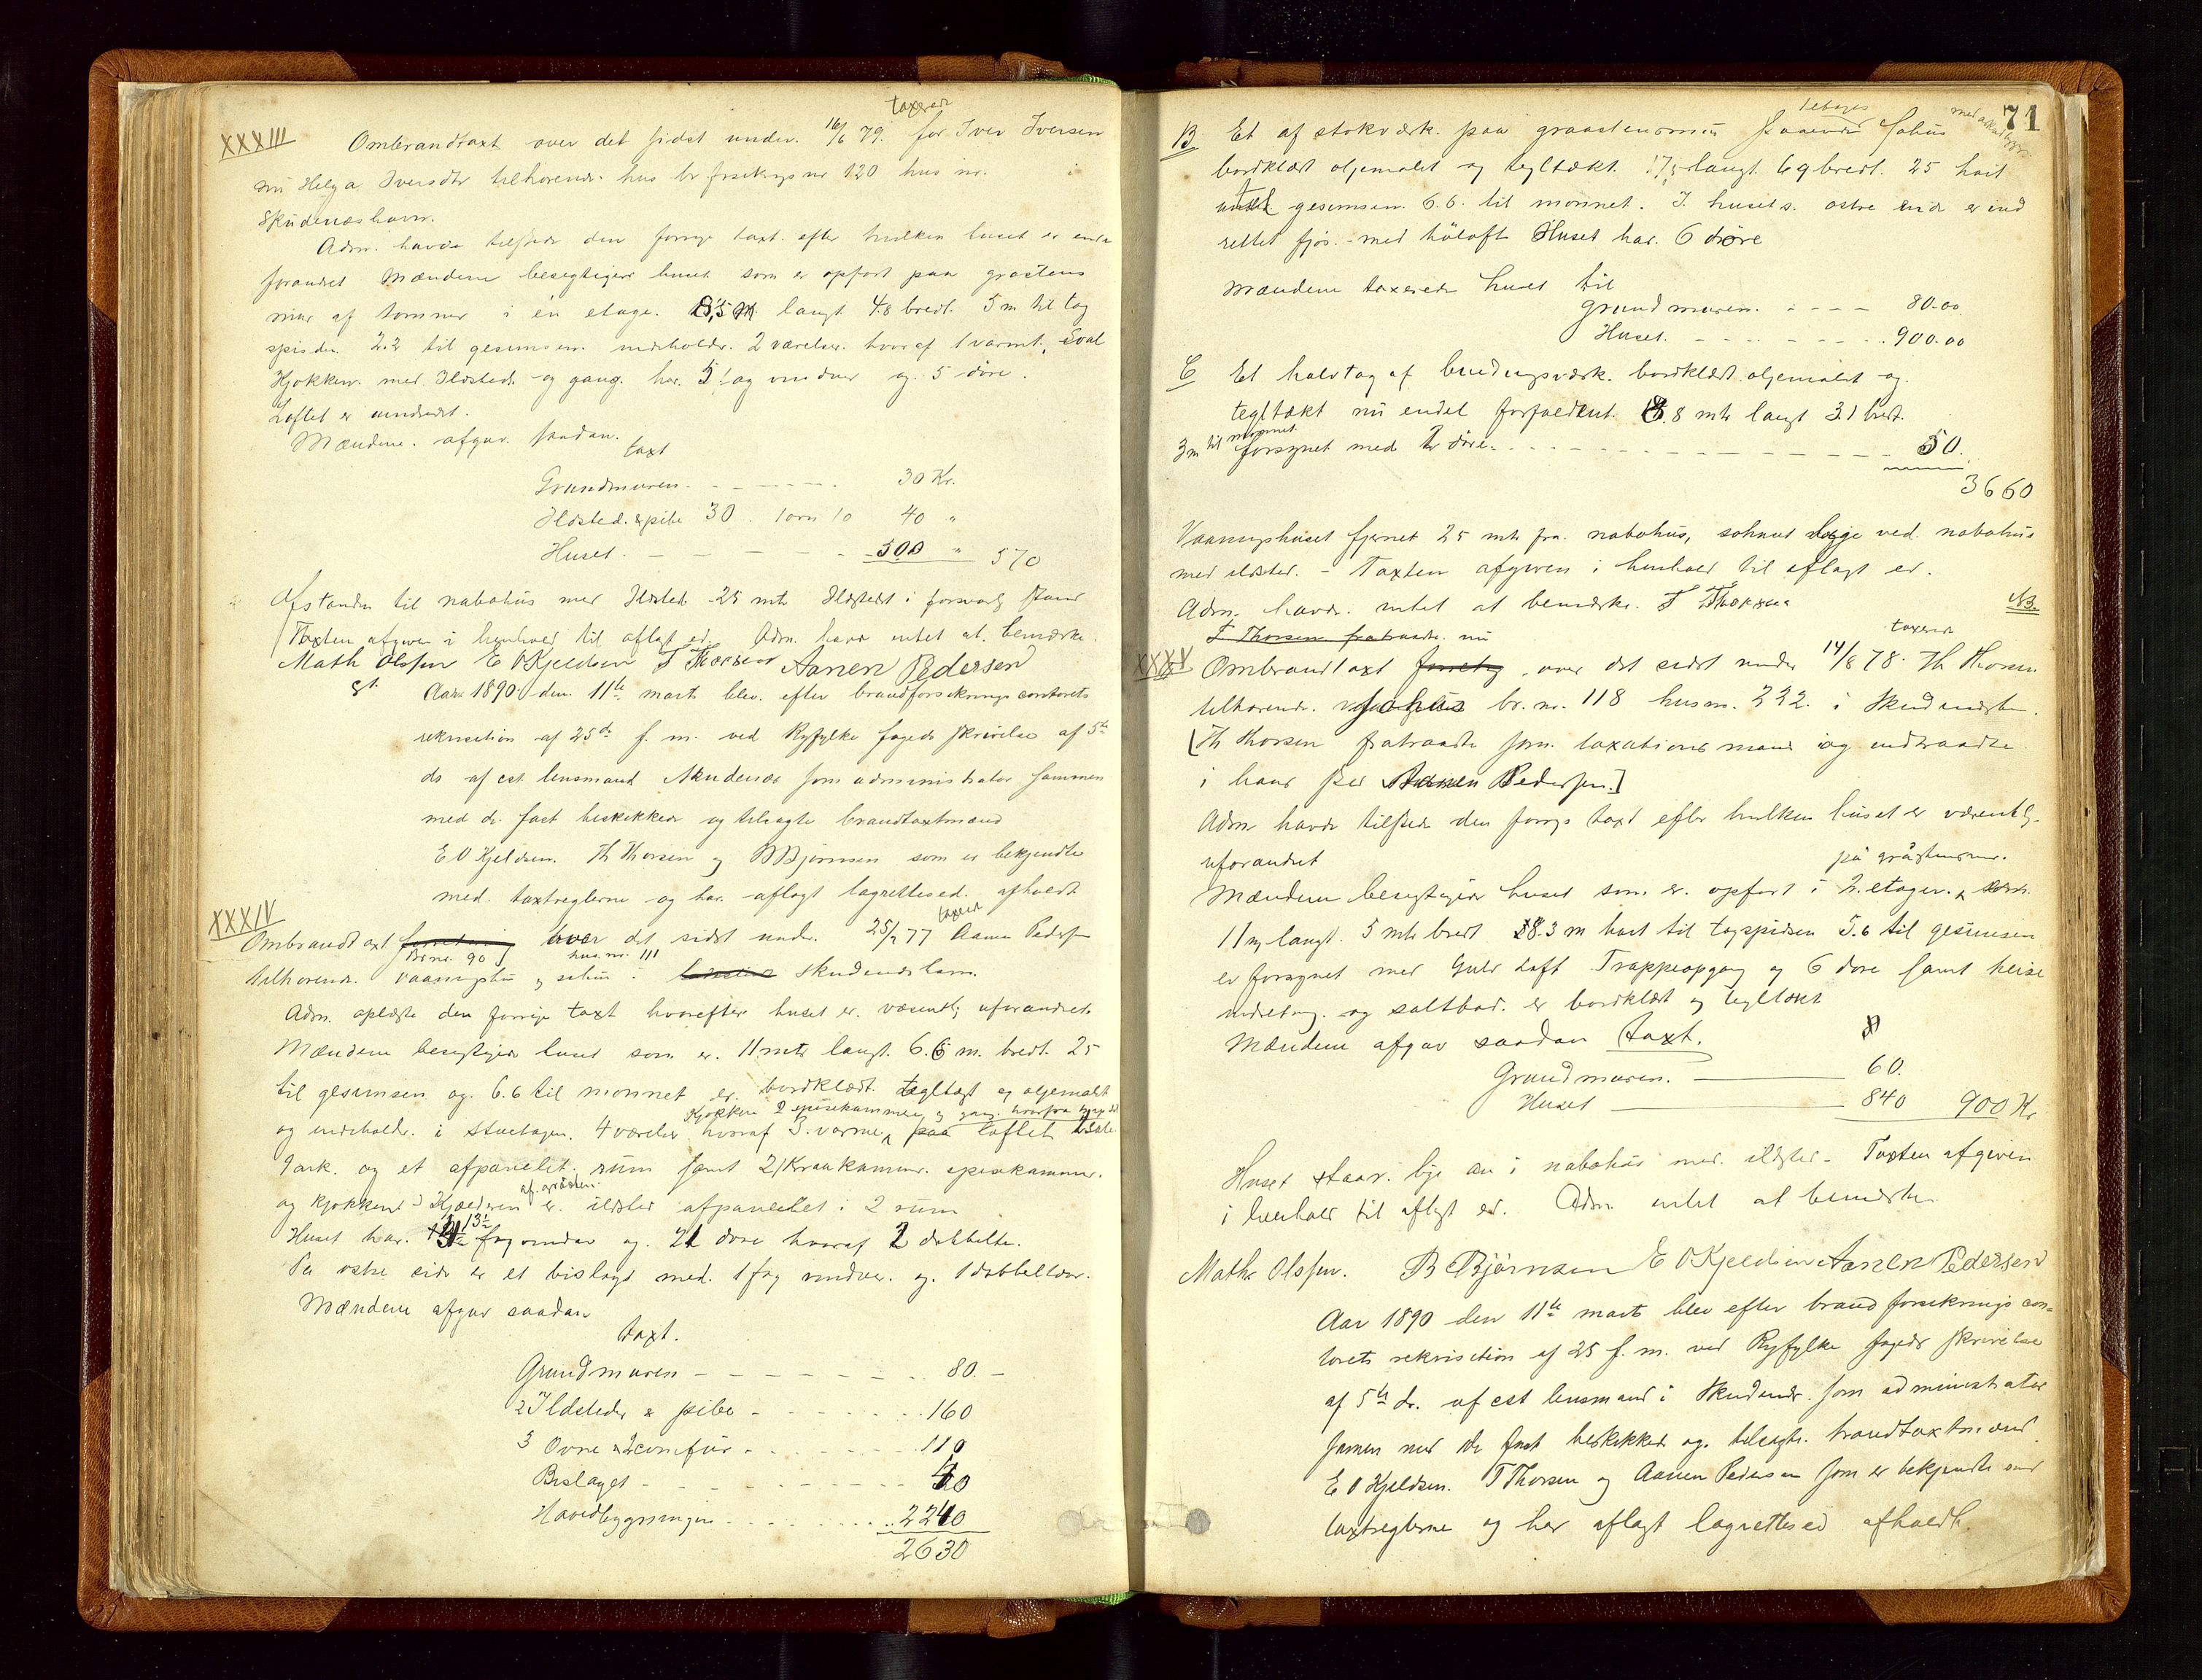 XXXIII Ombrandtaxt over det sidst under 16/6 79 taxered for Iver Iversen
nu Helga Iversdtr tilhørende hus br forsikrgs nr 120 hus nr. i
Skudenæshavn.
Adm. havde tilstede den forrige taxt efter hvilken huset er
forandret Mændene besegtiger huset som er opført paa graastens
mur af tømmer i én etage. 8,5 M langt 4.8 bredt. 5 m til tag
spidsen 2.2 til gesimsen indeholder 2 værelser hvoraf 1 varmt, Sval
Kjøkken med Ildsted og gang har 5 fag vinduer og 5 døre.
Loftet er uindredet.
Mændene afgav saadan
taxt
Grundmuren - - - - 30 Kr.
Ildsted & pibe 30. 1 ovn 10 40 "
Huset - - - - 500 " 570
Afstanden til nabohus med Ildsted 25 mtr Ildstedet i forsvarlig stand
Taxten afgiven i henhold til aflagt ed. Adm. havde intet at bemærke.
Math Olsen E O Kjeldsen T Thorsen Aanen Pedersen
Aar 1890 den 11te marts blev efter brandforsikrings contorets
rekvisition af 25de f. m. ved Ryfylke fogeds skrivelse af 5te
ds af cst lensmand Skudenæs som administrator sammen
med de fast beskikkede og tilsagte brandtaxtmænd
E O Kjeldsen. Th Thorsen og B Bjørnsen som er bekjendte
med taxtreglerne og har aflagt lagrettesed afholdt
XXXIV
Ombrandtaxt over det sidst under 25/7 77 taxered Aanen Pedersen
Br nr. 90 hus nr. 111
tilhørende vaaningshus og søhus i Skudeneshavn.
Adm. oplæste den forrige taxt hvorefter huset er væsentlig uforandret
Mændene besegtiger huset som er 11 mtr langt. 6.6 m. bredt. 25
til gesimsen og 6.6 til mønnet er bordklædt tegltagt og oljemalet
Kjøkken 2 spisekammer og gang hvorfra trap til
og indeholder i stuetagen. 4 værelser hvoraf 3 varme, paa loftet
1 ark. og et afpanelet rum samt 2 Kraakammer. spisekammer.
og kjøkken Kjælderen af graasten er ildsted afpanelet i 2 rum
Huset har 13½ fag vinduer og 21 døre hvoraf 2 dobbelte.
Paa østre side er et bislagt med 1 fag vinduer og 1 dobbeltdør.
Mændene afgav saadan
taxt.
Grundmuren - - - - 80. -
2 Ildsteder & pibe - - - - 160
3 Ovne & 2 comfür - - - - 110
Bislaget - - - - 40
Hovedbygningen - - - - 2240
2630
71
B Et af stokværk paa graastensmur staaende søhus
bordklædt oljemalet og tegltækt. 17,5 langt 69 bredt. 25 høit
until gesimsen 6.6. til mønnet. I husets østre ende er ind
rettet fjøs med høloft Huset har 6 døre
Mændene taxerede huset til
Grundmuren. - - - - 80.00
Huset. - - - - 900.00
C Et halvtag af bindingsværk bordklædt oljemalet og
tegltækt nu endel forfaldent. 8.8 mtr langt 3.1 bredt.
3 m til mønnet forsynet med 2 døre - - - - 50.
3660
Vaaningshuset fjernet 25 mtr fra nabohus, søhuset ligge ved nabohus
med ildsted. - Taxten afgiven i henhold til aflagt ed.
Adm. havde intet at bemærke. T Thorsen
T Thorsen fratraadte nu
NB
XXXV Ombrandtaxt over det sidst under 14/8 78 taxerede Th Thorsen
tilhørende søhus br. nr. 118 hus nr. 222. i Skudenæshn.
[Th Thorsen fratraadte som taxationsmand og indtraadte
i hans sted Aanen Pedersen.]
Adm havde tilstede den forrige taxt efter hvilken huset er væsentlig
uforandret
Mændene besegtiger huset som er opført i 2. etager. på gråstensmur.
11 m langt. 5 mtr bredt 8.3 m høit til tagspidsen 5.6 til gesimsen
er forsynet med Gulv Loft Trappeopgang og 6 døre samt heise
indretng. og saltbod. er bordklædt og tegltækt
Mændene afgav saadan taxt.
Grundmuren. 60.
Huset 840 900 Kr
Huset staar lige an i nabohus med ildsted - Taxten afgiven
i henhold til aflagt ed. Adm intet at bemærke
Maths Olsen. B Bjørnsen E O Kjeldsen Aanen Pedersen
Aar 1890 den 11te marts blev efter brandforsikrings con-
torets rekvisition af 25 f. m. ved Ryfylke fogeds skrivelse
af 5te ds. af cst lensmand i Skudenæs som administrator
sammen med de fast beskikkede og tilsagte brandtaxtmænd
E O Kjeldsen. T Thorsen og Aanen Pedersen som er bekjendte med
taxtreglerne og har aflagt lagrettesed afholdt.